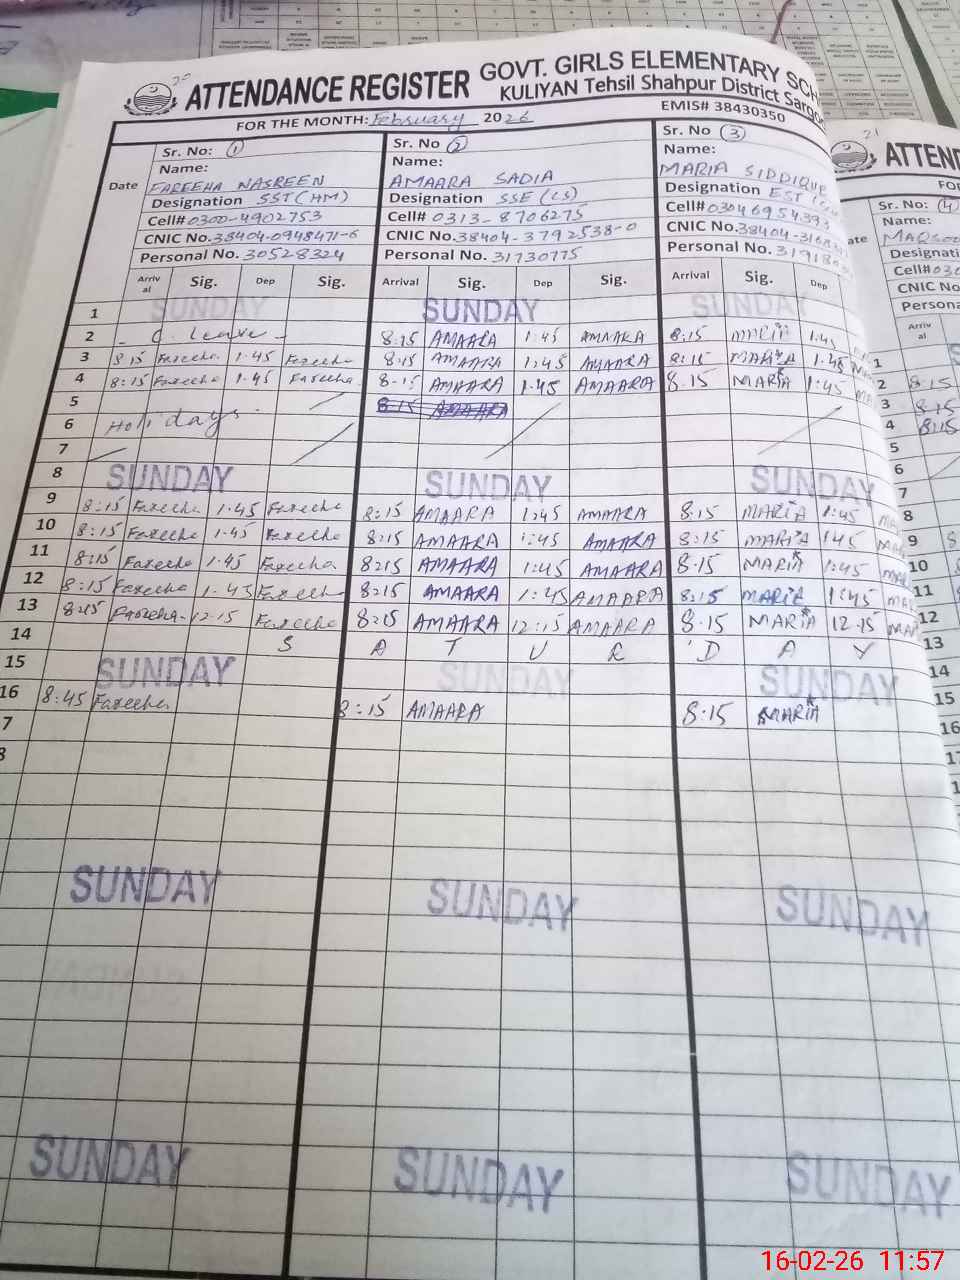 20
ATTENDANCE REGISTER GOVT. GIRLS ELEMENTARY
KULIYAN Tehsil Shahpur District
FOR THE MONTH: February 2026 EMIS# 38430350
Sr. No: 1 Sr. No 2 Sr. No 3
Name: Name: Name:
Date FAREEHA NASREEN AMAARA SADIA MARIA SIDDIQUE
Designation SST (HM) Designation SSE (LS) Designation EST
Cell# 0300-4902753 Cell# 0313-8706275 Cell#
CNIC No. 38404-0948471-6 CNIC No. 38404-3792538-0 CNIC No. 38404-
Personal No. 30528324 Personal No. 31730775 Personal No.
Arrival Sig. Dep Sig. Arrival Sig. Dep Sig. Arrival Sig. Dep
1 SUNDAY SUNDAY SUNDAY
2 - C. leave - 8:15 AMAARA 1:45 AMAARA 8:15 MARIA 1:45
3 8:15 Fareeha 1.45 Fareeha 8:15 AMAARA 1:45 AMAARA 8:15 MARIA 1.45
4 8:15 Fareeha 1.45 Fareeha 8:15 AMAARA 1.45 AMAARA 8.15 MARIA 1:45
5 8:15 AMAARA
6 Holidays
7
8 SUNDAY SUNDAY SUNDAY
9 8:15 Fareeha 1.45 Fareeha 8:15 AMAARA 1:45 AMAARA 8:15 MARIA 1:45
10 8:15 Fareeha 1.45 Fareeha 8:15 AMAARA 1:45 AMAARA 8:15 MARIA 1:45
11 8:15 Fareeha 1.45 Fareeha 8:15 AMAARA 1:45 AMAARA 8.15 MARIA 1:45
12 8:15 Fareeha 1.45 Fareeha 8:15 AMAARA 1:45 AMAARA 8:15 MARIA 1:45
13 8:15 Fareeha 12.15 Fareeha 8:15 AMAARA 12:15 AMAARA 8.15 MARIA 12.15
14 S A T U R D A Y
15 SUNDAY SUNDAY SUNDAY
16 8:45 Fareeha 8:15 AMAARA 8:15 MARIA
7
8
SUNDAY SUNDAY SUNDAY
SUNDAY SUNDAY SUNDAY
21
ATTEN
Sr. No: 4
Name:
Cell#
CNIC No.
Person
Arrival
1
2 8:15
3 8:15
4 8:15
5
6
7
8
9
10
11
12
13
14
15
16
16-02-26 11:57